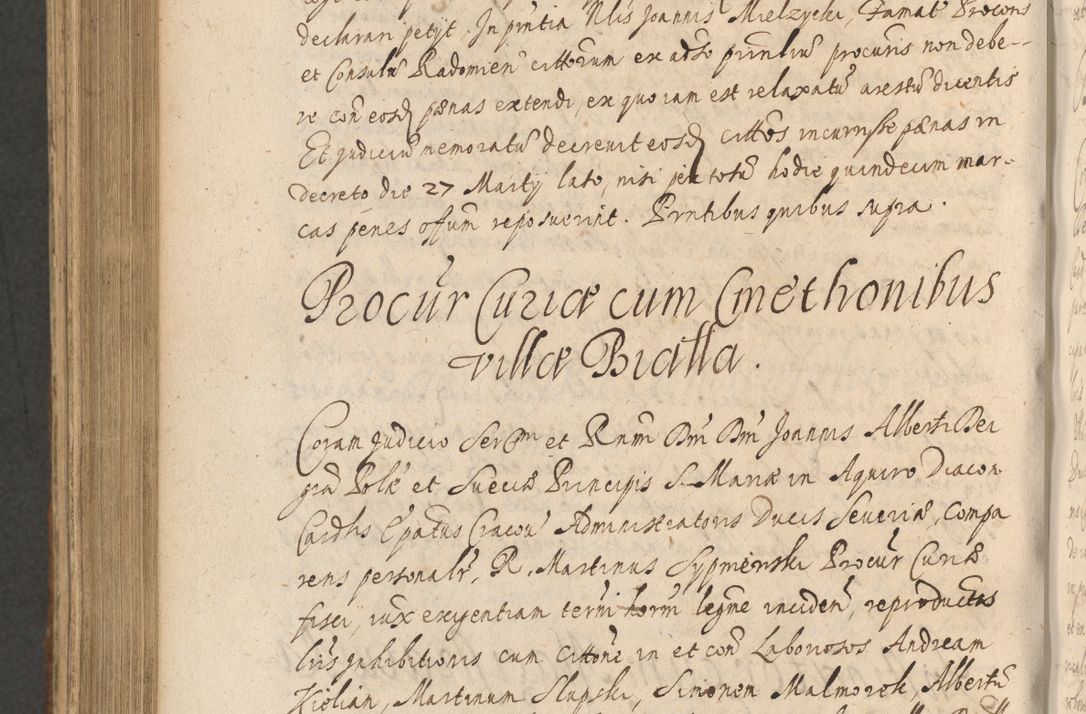 declarari petyt. In pñtia Nlis Joannis Mielzycki, Famat Procons
et Consulũ Radomień citto̅rum ex adŝo prinliũ procuris non debe-
re con̄ eosđ pænas extendi, ex quo iam est relaxatũ arestũ dicentis
Et Judiciũ memoratũ decrevit eosđ cittos incurrisse pænas in
decreto die 27 Martij lato, nisi per totũ hodie quindecim mar-
cas penes offum reposuerint. Prntibus quibus supra.
Procur̃ Curiæ cum Cmethonibus
villæ Bialla.
Coram Judicio Serm̃i et Rnm̃i Dm̃ Dm̃ Joannis Alberti Dei
gra̅ Polæ et Sueciæ Principis S. Mariæ in Aquiro Diacon
Cardlis Epatus Cracov̄ Administratoris Ducis Severiæ, Compa
rens personalr̃, R. Martinus Sypnienski Procur̃ Curiæ
fisci, iux̃ exigentiam termi horm̃ legm̃e inciden̄, reproductis
lris Inhibitionis cum cittone in et con̄ Laboriosos Andream
Kielian, Martinum Slupski, Simonem Malmorek, Albertũ